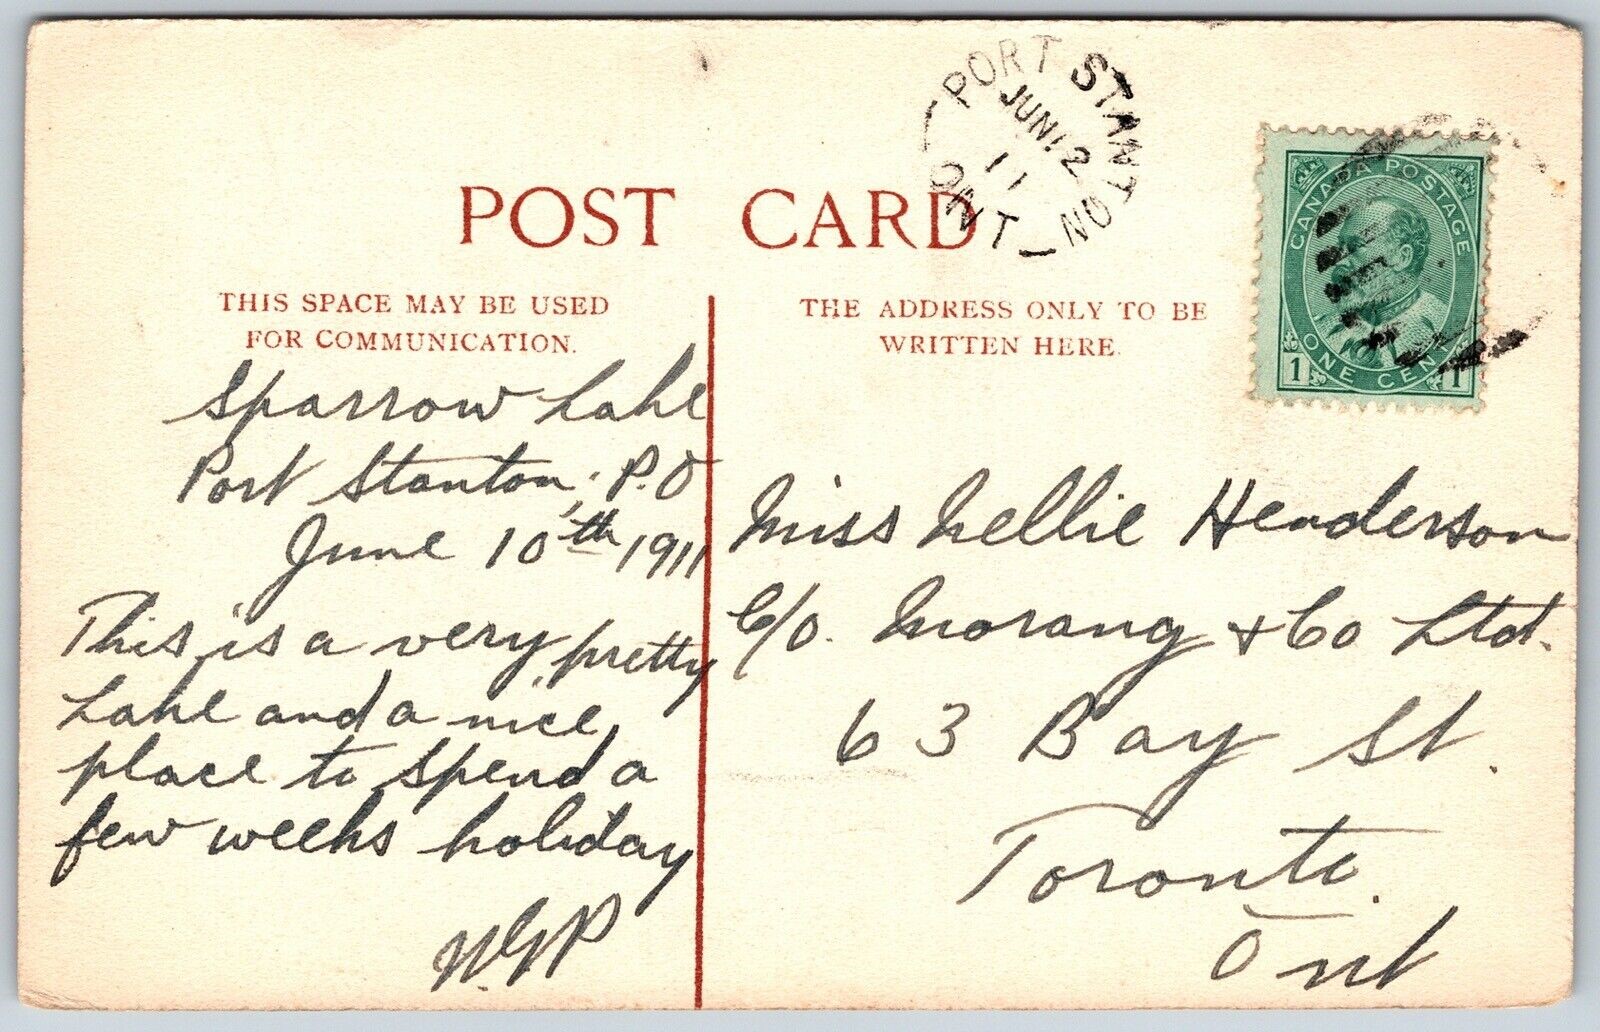 PORT STANTON
JUN 12
11
ONT
CANADA POSTAGE
1 ONE CENT 1
POST CARD
THIS SPACE MAY BE USED
FOR COMMUNICATION.
THE ADDRESS ONLY TO BE
WRITTEN HERE.
Sparrow Lake
Port Stanton, P.O
June 10th 1911
This is a very pretty
Lake and a nice
place to spend a
few weeks holiday
Miss Nellie Henderson
C/o. Morang & Co Ltd.
63 Bay St.
Toronto.
Ont